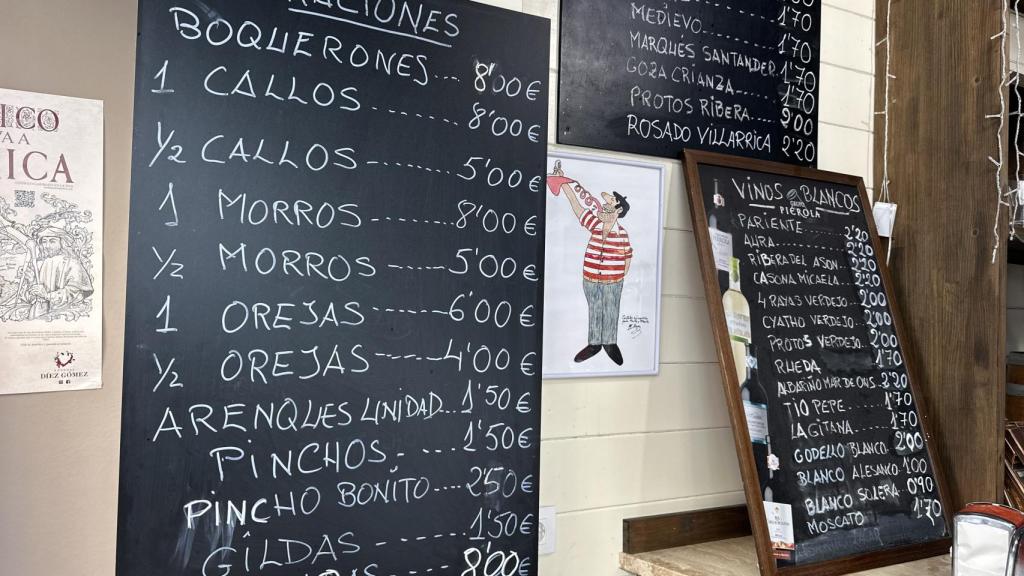 ICO
A A
RICA
DÍEZ GÓMEZ
CIONES
BOQUERONES... 8'00 €
1 CALLOS ------ 8'00 €
1/2 CALLOS ------ 5'00 €
1 MORROS ------- 8'00 €
1/2 MORROS ------ 5'00 €
1 OREJAS ------ 6'00 €
1/2 OREJAS ------ 4'00 €
ARENQUES UNIDAD... 1'50 €
PINCHOS. - -- 1'50 €
PINCHO BONITO ---- 2'50 €
GILDAS ---- 1'50 €
8'00 €
1'70
MEDIEVO 1'70
MARQUÉS SANTANDER 1'70
GOZA CRIANZA 1'70
PROTOS RIBERA 3'00
ROSADO VILLARRICA 2'20
VINOS BLANCOS
PIÉROLA
PARIENTE 2'20
AURA 2'20
RIBERA DEL ASON 2'20
CASONA MICAELA 2'20
4 RAYAS VERDEJO 2'00
CYATHO VERDEJO 2'00
PROTOS VERDEJO 2'00
RUEDA 1'70
ALBARIÑO MAR DE ONS 2'20
TIO PEPE 1'70
LA GITANA 1'70
GODELLO BLANCO 2'00
BLANCO ALESANCO 1'00
BLANCO SOLERA 0'90
MOSCATO 1'70